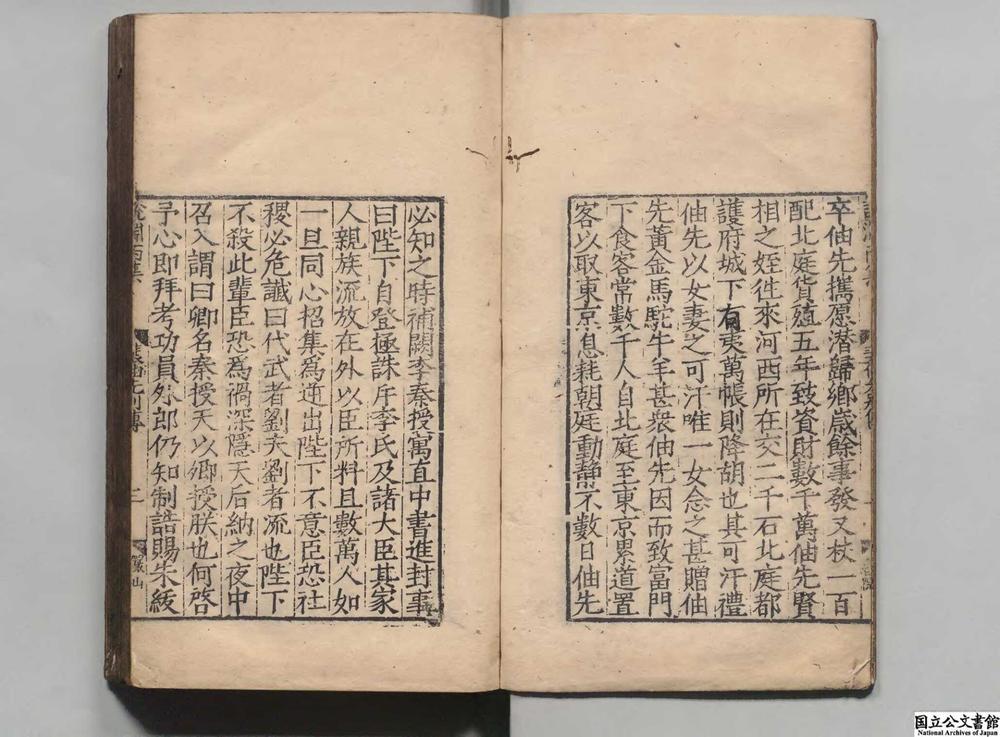 卒伷先攜愿潛歸鄉歲餘事發又杖一百
配北庭貨殖五年致資財數千萬伷先賢
相之姪徃來河西所在交二千石北庭都
護府城下有夷萬帳則降胡也其可汗禮
伷先以女妻之可汗唯一女念之甚贈伷
先黃金馬駝牛羊甚衆伷先因而致富門
下食客常數千人自北庭至東京累道置
客以取東京息耗朝庭動靜不數日伷先
必知之時補闕李秦授寓直中書進封事
曰陛下自登極誅斥李氏及諸大臣其家
人親族流放在外以臣所料且數萬人如
一旦同心招集爲逆出陛下不意臣恐社
稷必危讖曰代武者劉夫劉者流也陛下
不殺此輩臣恐爲禍深隱天后納之夜中
召入謂曰卿名秦授天以卿授朕也何啓
予心即拜考功員外郎仍知制誥賜朱紱
国立公文書館
National Archives of Japan